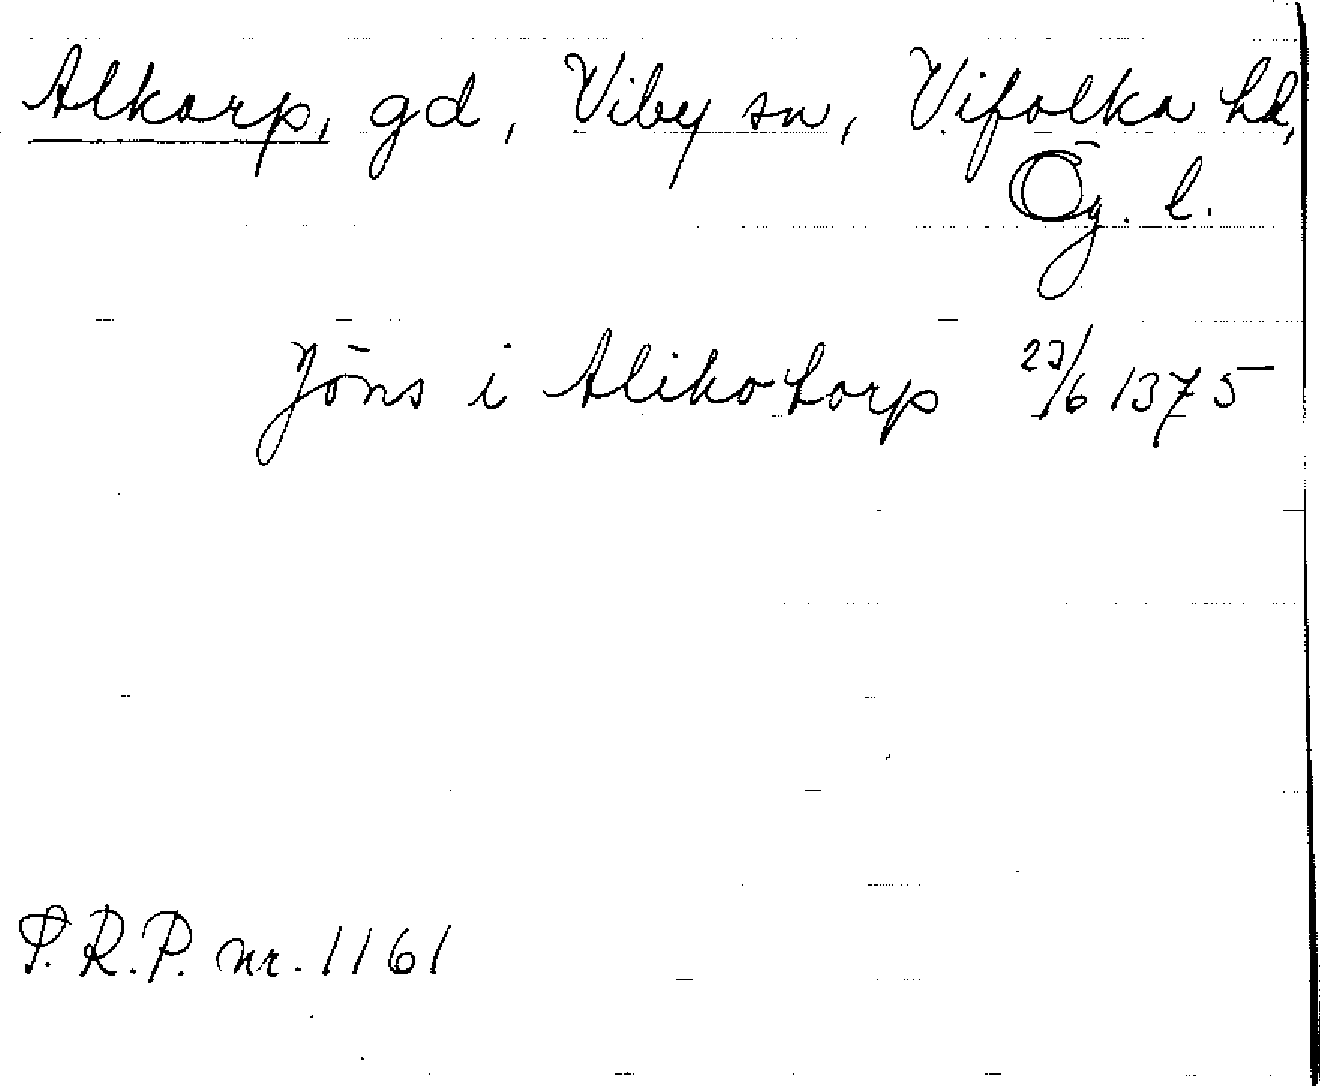 Alkarp, gd, Viby sn, Vifolka hd,
Ög. l.
Jöns i Alikotorp 27/6 1375
P.R.P. nr. 1161